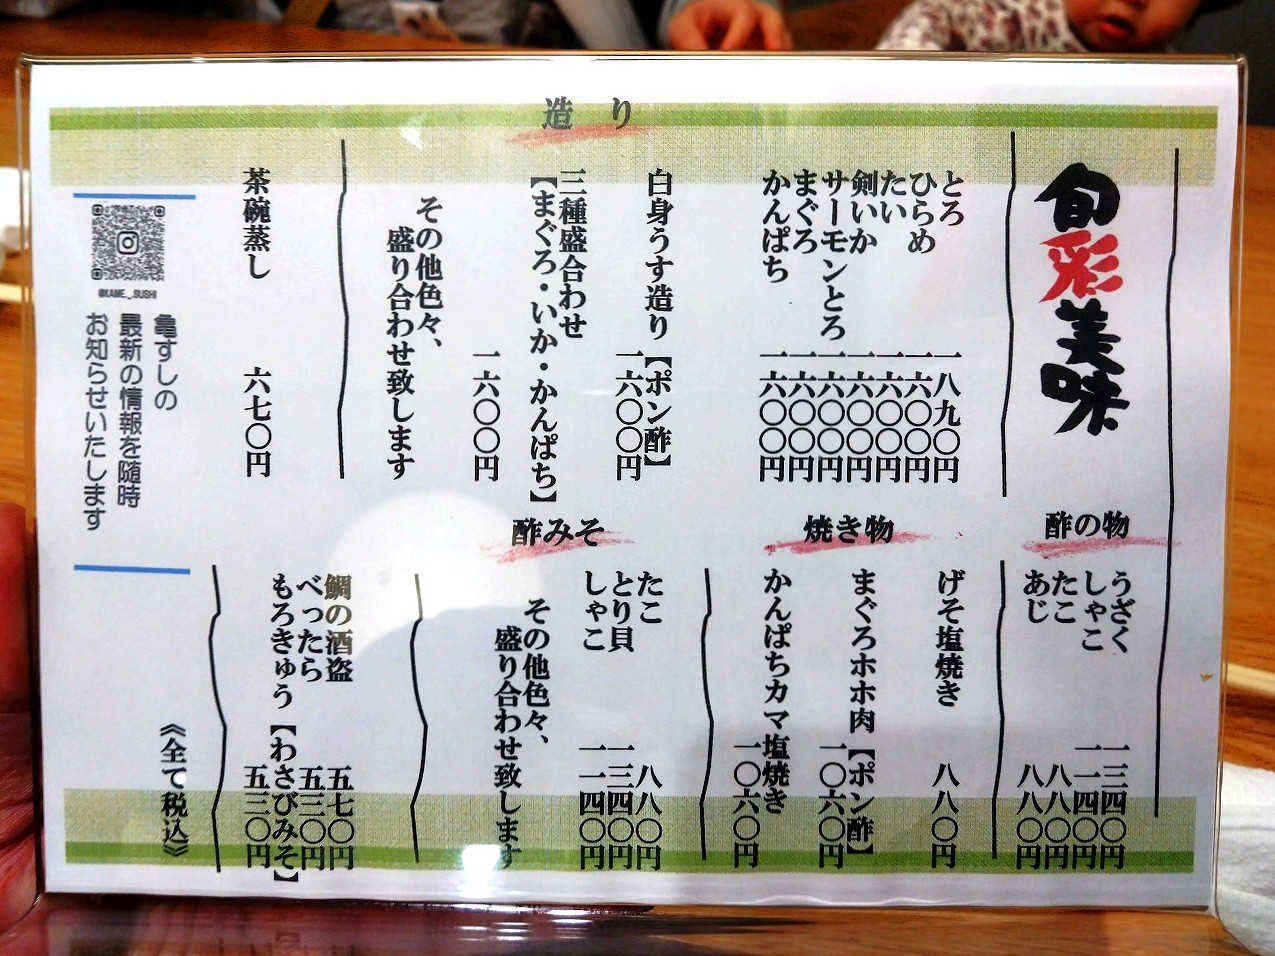 旬彩美味
造り
とろ 一八九〇円
ひらめ 一六〇〇円
たい 一六〇〇円
剣いか 一六〇〇円
サーモンとろ 一六〇〇円
まぐろ 一六〇〇円
かんぱち 一六〇〇円
白身うす造り【ポン酢】
一六〇〇円
三種盛合わせ
【まぐろ・いか・かんぱち】
一六〇〇円
その他色々、
盛り合わせ致します
茶碗蒸し 六七〇円
@KAME._.SUSHI
亀すしの
最新の情報を随時
お知らせいたします
酢の物
うざく 一三四〇円
しゃこ 一一四〇円
たこ 八八〇円
あじ 八八〇円
焼き物
げそ塩焼き 八八〇円
まぐろホホ肉【ポン酢】
一〇六〇円
かんぱちカマ塩焼き
一〇六〇円
酢みそ
たこ 八八〇円
とり貝 一三四〇円
しゃこ 一一四〇円
その他色々、
盛り合わせ致します
鯛の酒盗 五七〇円
べったら 五三〇円
もろきゅう【わさびみそ】
五三〇円
《全て税込》